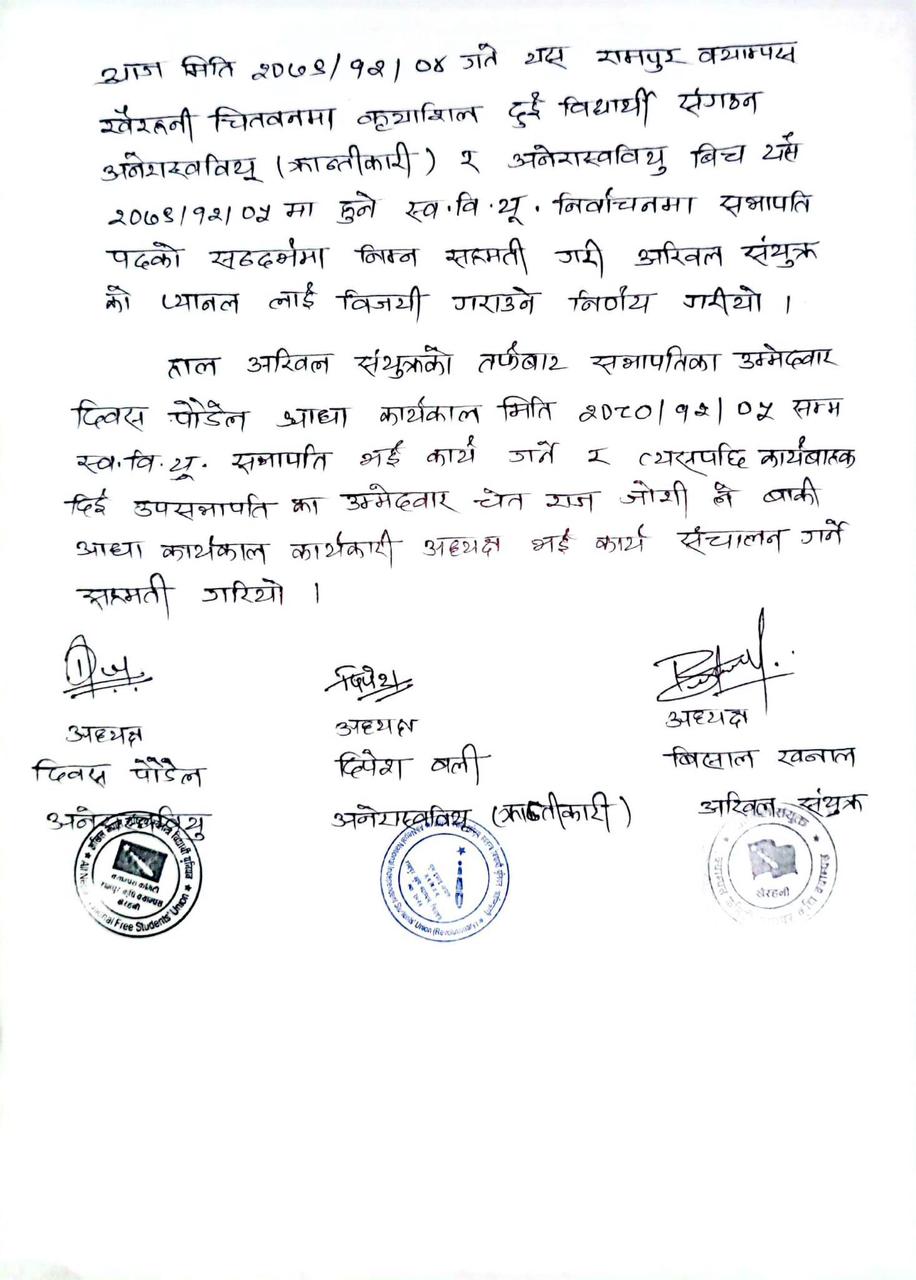 आज मिति २०७९/१२/०४ गते यस रामपुर क्याम्पस
खैरहनी चितवनमा कृयाशिल दुई विद्यार्थी संगठन
अनेरास्ववियू (क्रान्तीकारी) र अनेरास्ववियु बिच यसै
२०७९/१२/०५ मा हुने स्व.वि.यू. निर्वाचनमा सभापति
पदको सन्दर्भमा निम्न सहमती गरी अखिल संयुक्त
को प्यानल लाई विजयी गराउने निर्णय गरीयो ।
हाल अखिल संयुक्तको तर्फबाट सभापतिका उम्मेदवार
दिवस पौडेल आधा कार्यकाल मिति २०८०/१२/०५ सम्म
स्व.वि.यू. सभापति भई कार्य गर्ने र त्यसपछि कार्यबाहक
दिई उपसभापति का उम्मेदवार चेत राज जोशी ले बाकी
आधा कार्यकाल कार्यकारी अध्यक्ष भई कार्य संचालन गर्ने
सहमती गरियो ।
दिपेश
अध्यक्ष अध्यक्ष अध्यक्ष
दिवस पौडेल दिपेश वली बिसाल खनाल
अनेरास्ववियु अनेरास्ववियु (क्रान्तीकारी) अखिल संयुक्त
खैरहनी
Free Students' Union
Students' Union (Revolutionary)
खैरहनी